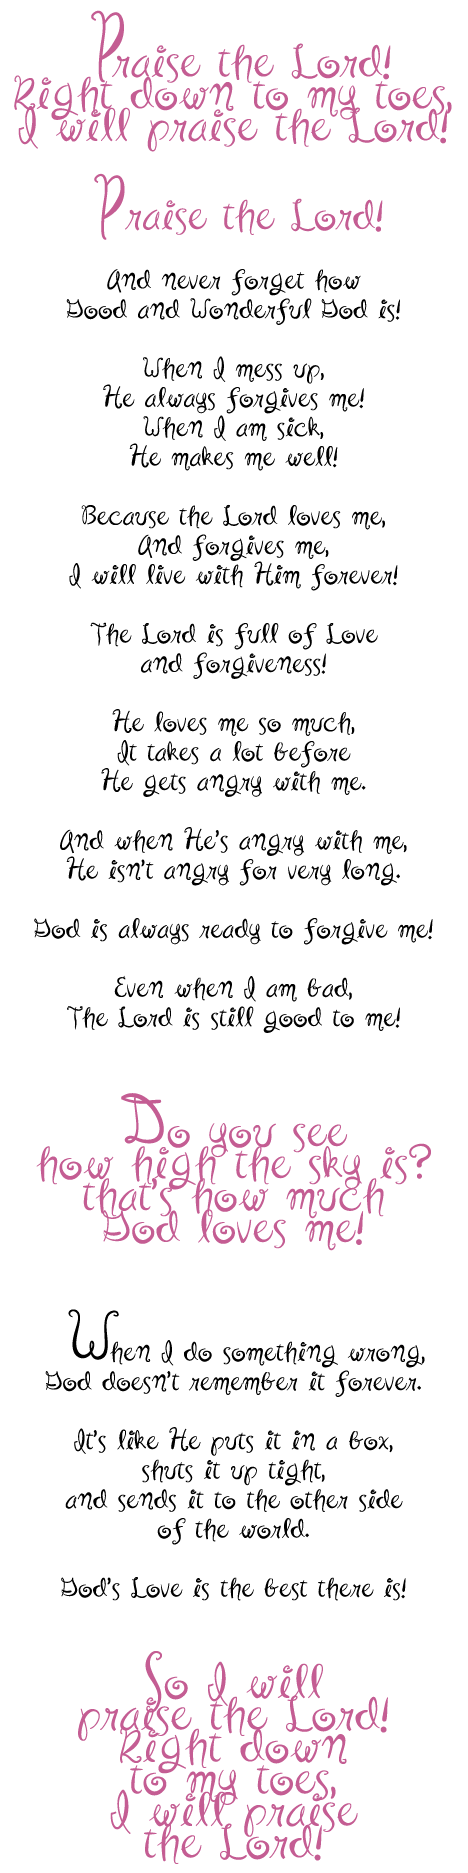 Praise the Lord!
Right down to my toes,
I will praise the Lord!
Praise the Lord!
And never forget how
Good and Wonderful God is!
When I mess up,
He always forgives me!
When I am sick,
He makes me well!
Because the Lord loves me,
And forgives me,
I will live with Him forever!
The Lord is full of Love
and forgiveness!
He loves me so much,
It takes a lot before
He gets angry with me.
And when He's angry with me,
He isn't angry for very long.
God is always ready to forgive me!
Even when I am bad,
The Lord is still good to me!
Do you see
how high the sky is?
that's how much
God loves me!
When I do something wrong,
God doesn't remember it forever.
It's like He puts it in a box,
shuts it up tight,
and sends it to the other side
of the world.
God's Love is the best there is!
So I will
praise the Lord!
Right down
to my toes,
I will praise
the Lord!